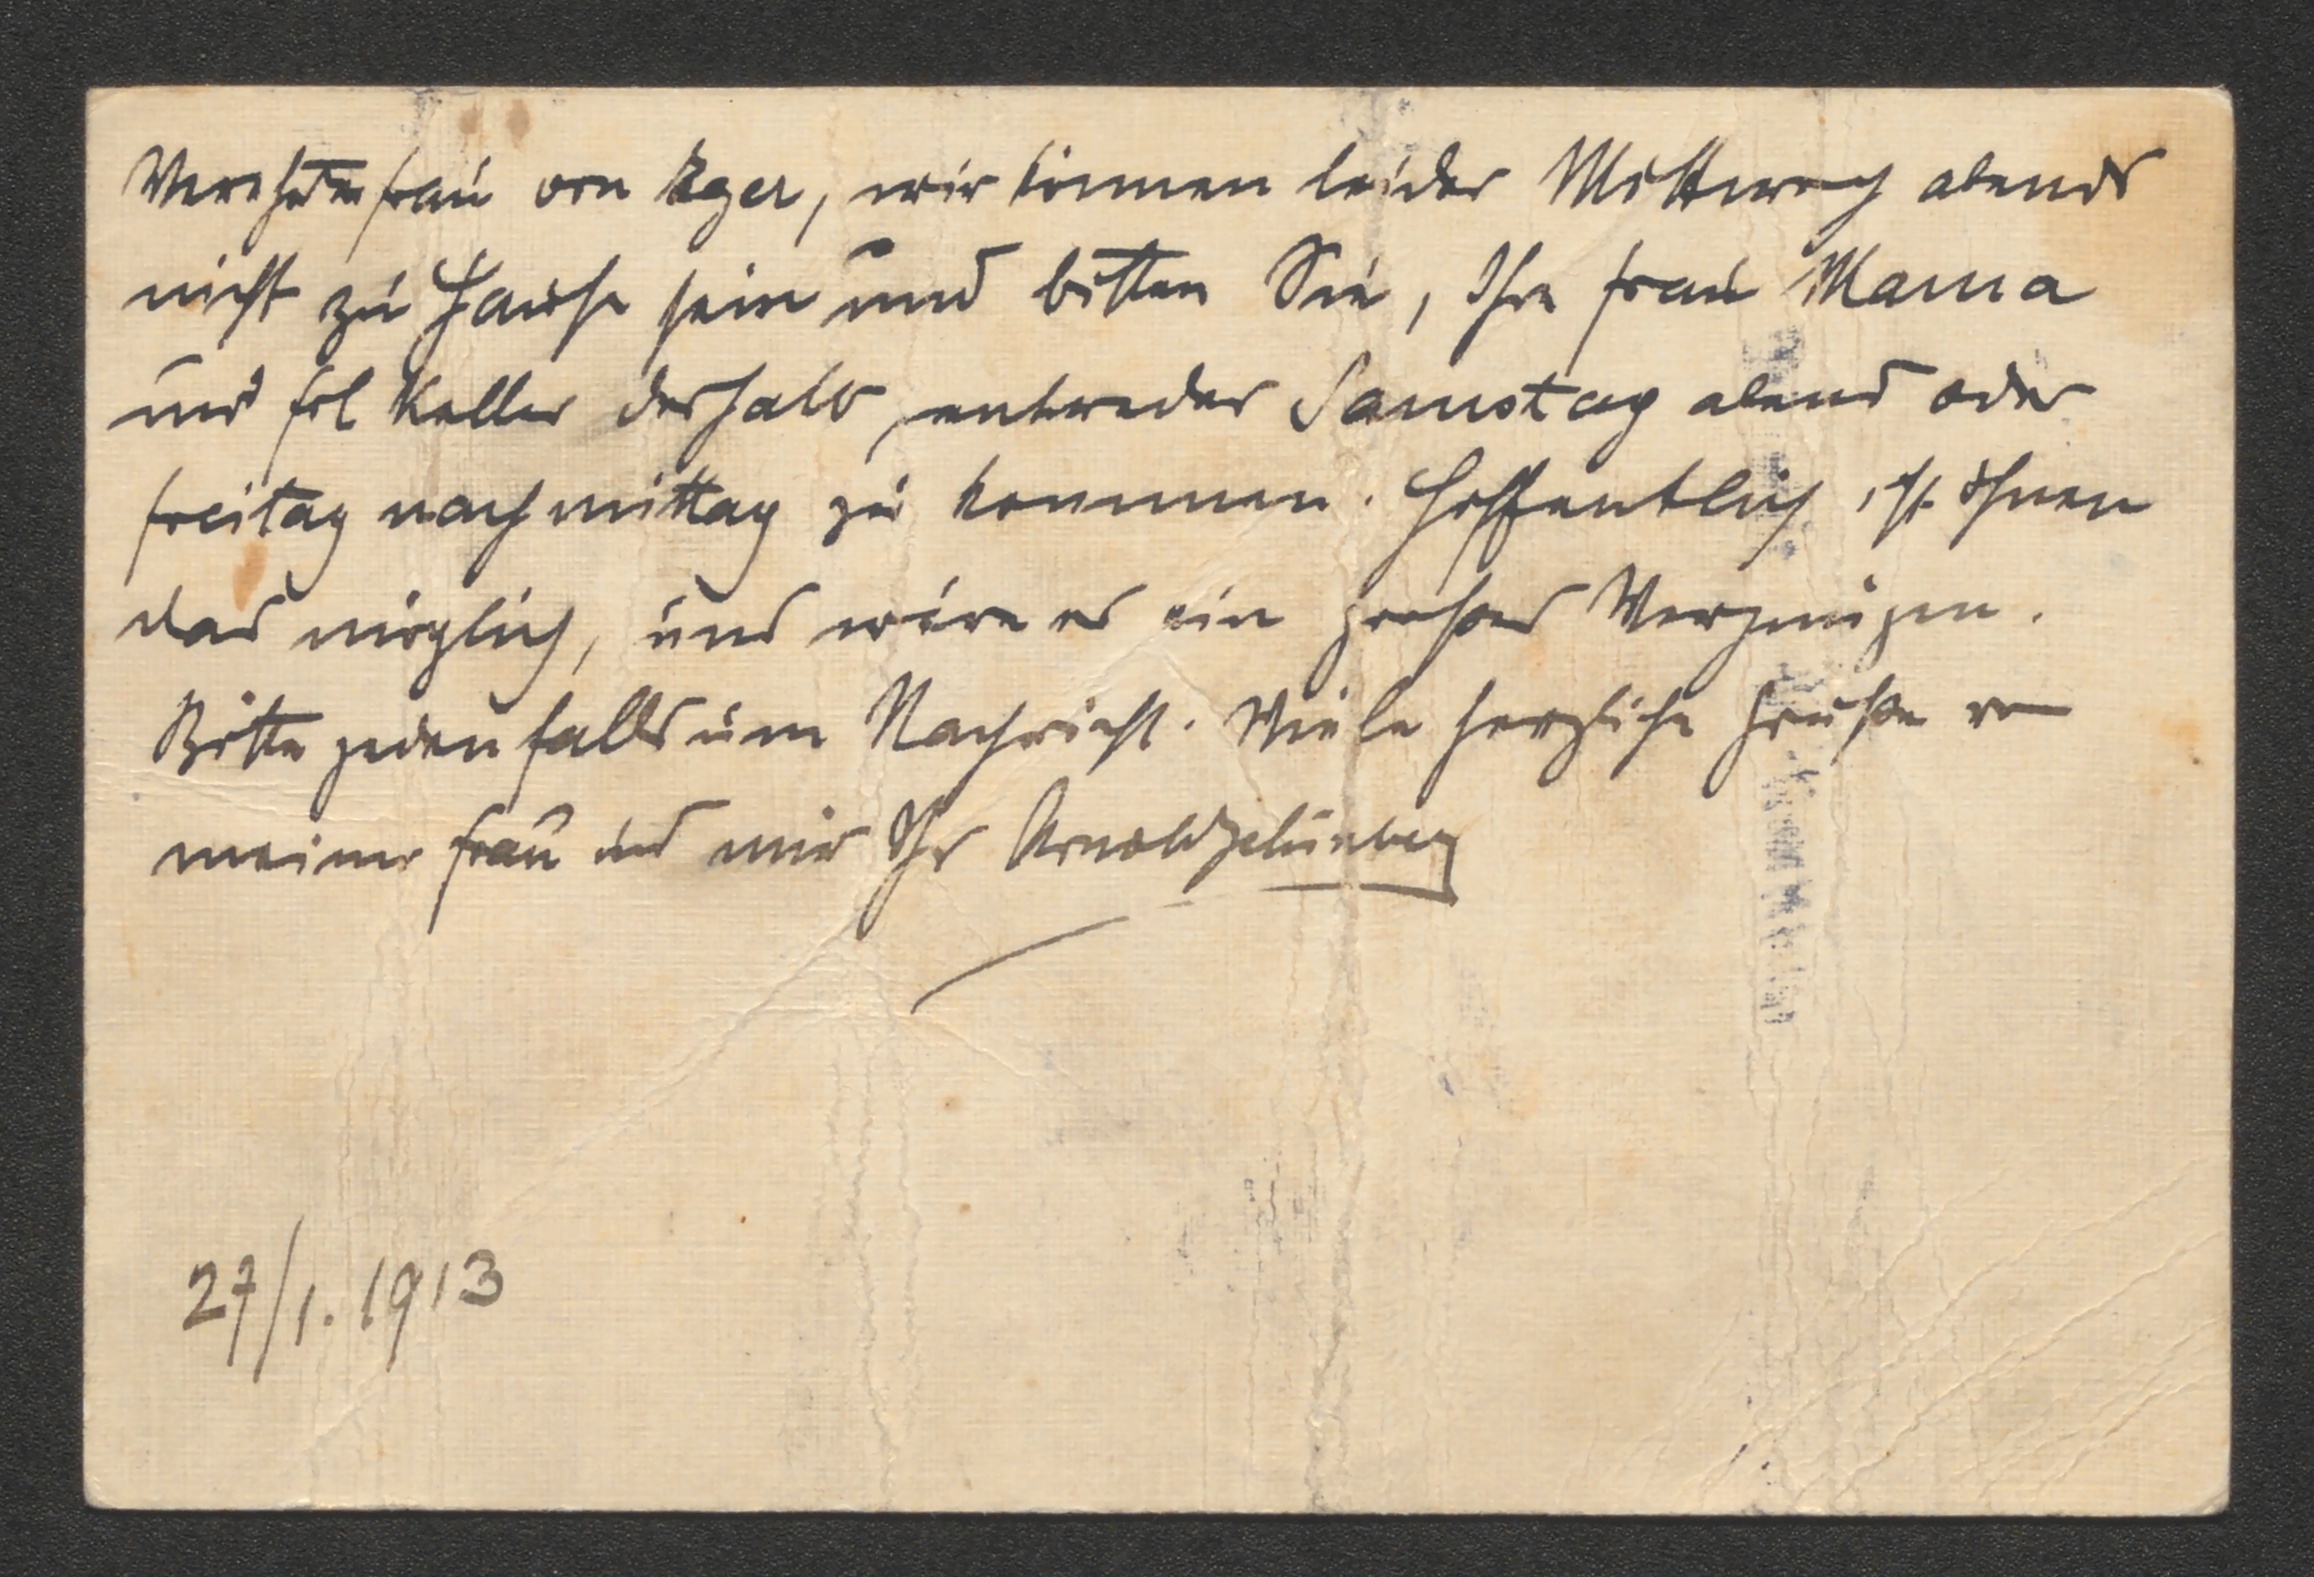 Verehrte Frau von Eger, wir können leider Mittwoch abends
nicht zu Hause sein und bitten Sie, Ihre Frau Mama
und Frl Keller deshalb, entweder Samstag abend oder
Freitag nachmittag zu kommen. Hoffentlich ist Ihnen
das möglich, uns wäre es ein großes Vergnügen.
Bitte jedenfalls um Nachricht. Viele herzliche Grüße von
meiner Frau und mir Ihr Arnold Schönberg
27/1. 1913